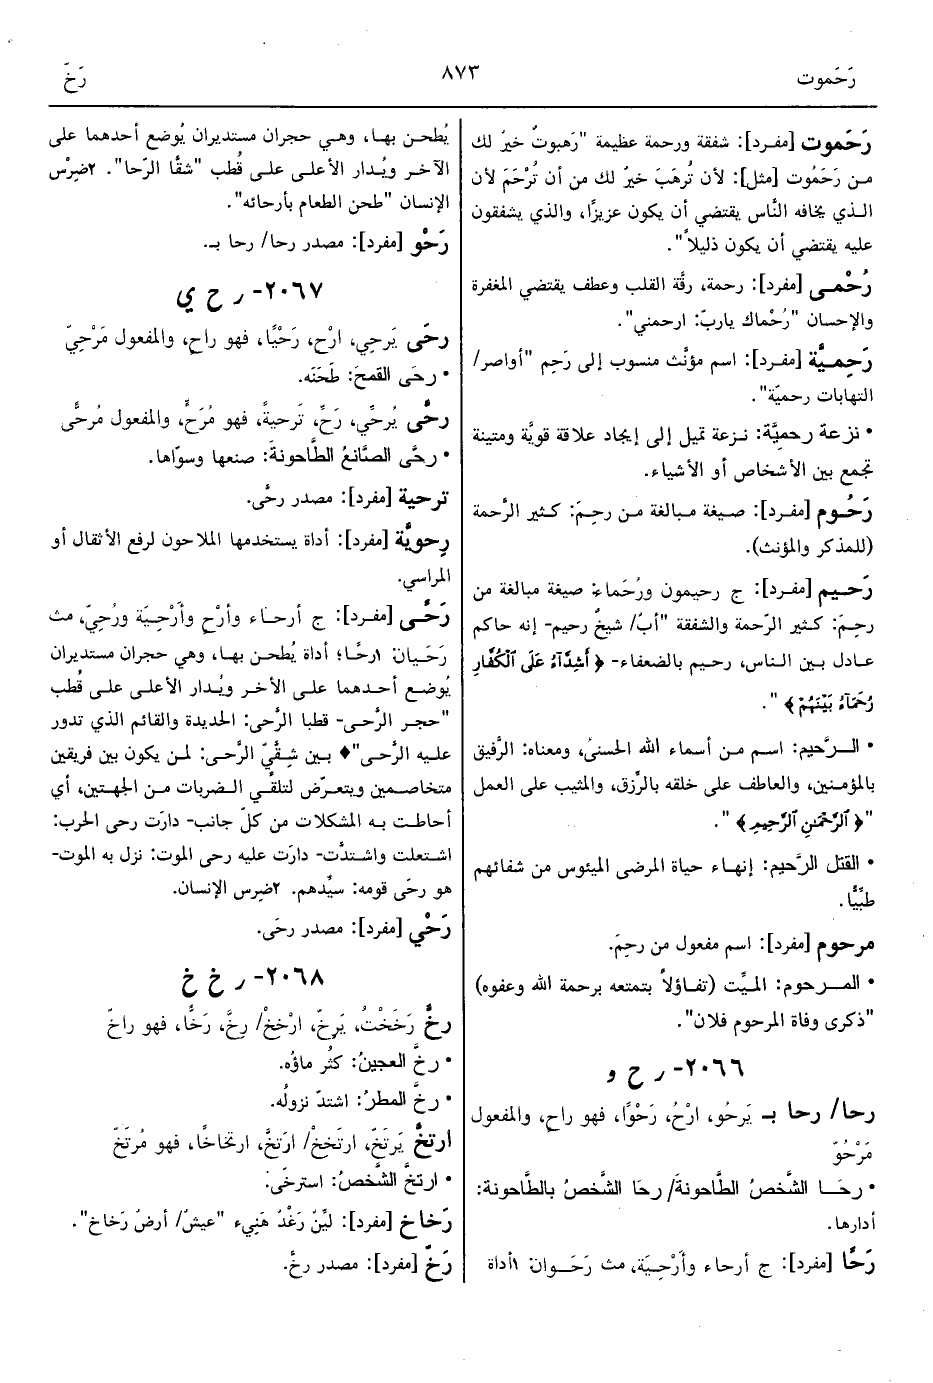 رَحَموت
٨٧٣
رَخّ
رَحَموت [مفرد]: شفقة ورحمة عظيمة "رَهبوتٌ خيرٌ لك
من رَحَمُوت [مثل]: لأن تُرهَبَ خيرٌ لك من أن تُرْحَمَ لأن
الذي يخافه النَّاس يقتضي أن يكون عزيزًا، والذي يشفقون
عليه يقتضي أن يكون ذليلاً".
رُحْمى [مفرد]: رحمة، رقَّة القلب وعطف يقتضي المغفرة
والإحسان "رُحْماك ياربّ: ارحمني".
رَحِميَّة [مفرد]: اسم مؤنَّث منسوب إلى رَحِم "أواصر/
التهابات رحميّة".
• نزعة رحميَّة: نزعة تميل إلى إيجاد علاقة قويَّة ومتينة
تجمع بين الأشخاص أو الأشياء.
رَحُوم [مفرد]: صيغة مبالغة من رحِمَ: كثير الرَّحمة
(للمذكر والمؤنث).
رَحيم [مفرد]: ج رحيمون ورُحَماءُ: صيغة مبالغة من
رحِمَ: كثير الرّحمة والشفقة "أبٌ/ شيخٌ رحيم- إنه حاكم
عادل بين الناس، رحيم بالضعفاء- ﴿أَشِدَّآءُ عَلَى ٱلْكُفَّارِ
رُحَمَآءُ بَيْنَهُمْ﴾ ".
• الرَّحيم: اسم من أسماء الله الحسنى، ومعناه: الرَّفيق
بالمؤمنين، والعاطف على خلقه بالرِّزق، والمثيب على العمل
"﴿ٱلرَّحْمَٰنِ ٱلرَّحِيمِ﴾ ".
• القتل الرَّحيم: إنهاء حياة المرضى الميئوس من شفائهم
طبِّيًّا.
مرحوم [مفرد]: اسم مفعول من رحِمَ.
• المرحوم: الميِّت (تفاؤلاً بتمتعه برحمة الله وعفوه)
"ذكرى وفاة المرحوم فلان".
٢٠٦٦- ر ح و
رحا/ رحا بـ يَرحُو، ارْحُ، رَحْوًا، فهو راحٍ، والمفعول
مَرْحُوّ
• رحا الشَّخصُ الطَّاحونةَ/ رحَا الشَّخصُ بالطَّاحونة:
أدارها.
رَحًا [مفرد]: ج أرحاء وأَرْحِيَة، مث رَحَوان: ١أداة
يُطحن بها، وهي حجران مستديران يُوضع أحدهما على
الآخر ويُدار الأعلى على قُطب "شقَّا الرّحا". ٢ضِرْس
الإنسان "طحن الطعام بأرحائه".
رَحْو [مفرد]: مصدر رحا/ رحا بـ.
٢٠٦٧- ر ح ي
رحَى يَرحِي، ارْحِ، رَحْيًا، فهو راحٍ، والمفعول مَرْحِيّ
• رحَى القمحَ: طَحَنَه.
رحَّى يُرحِّي، رَحِّ، تَرحيةً، فهو مُرَحٍّ، والمفعول مُرحًّى
• رحَّى الصَّانعُ الطَّاحونةَ: صنعها وسوّاها.
ترحية [مفرد]: مصدر رحَّى.
رِحويَّة [مفرد]: أداة يستخدمها الملاحون لرفع الأثقال أو
المراسي.
رَحًى [مفرد]: ج أرحاء وأرْحٍ وأَرْحِيَة ورُحِيّ، مث
رَحَيان: ١رحًا؛ أداة يُطحن بها، وهي حجران مستديران
يُوضع أحدهما على الأخر ويُدار الأعلى على قُطب
"حجر الرَّحى- قطبا الرَّحى: الحديدة والقائم الذي تدور
عليه الرَّحى"♦ بين شِقَّيِّ الرَّحى: لمن يكون بين فريقين
متخاصمين ويتعرّض لتلقّي الضربات من الجهتين، أي
أحاطت به المشكلات من كلّ جانب- دارَت رحى الحرب:
اشتعلت واشتدَّت- دارَت عليه رحى الموت: نزل به الموت-
هو رحَى قومه: سيِّدهم. ٢ضِرس الإنسان.
رَحْي [مفرد]: مصدر رحَى.
٢٠٦٨- ر خ خ
رخَّ رَخَخْتُ، يَرِخّ، ارْخِخْ/ رِخَّ، رَخًّا، فهو راخّ
• رخَّ العجينُ: كثُر ماؤُه.
• رخَّ المطرُ: اشتدّ نزولُه.
ارتخَّ يَرتَخّ، ارتَخِخْ/ ارتَخَّ، ارتخاخًا، فهو مُرتَخّ
• ارتخَّ الشَّخصُ: استرخَى.
رَخاخ [مفرد]: ليِّنٌ رَغْدٌ هَنِيء "عيشٌ/ أرضٌ رَخاخ".
رَخّ [مفرد]: مصدر رخَّ.